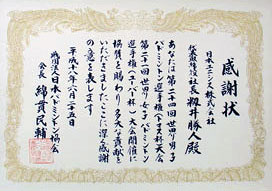 感謝状
日本ユニシス株式会社
代表取締役社長 籾井勝人殿
あなたは第二十四回世界男子
バドミントン選手権(トマス杯)大会
第二十一回世界女子バドミントン
選手権(ユーバー杯)大会開催に
協賛を賜わり多大な貢献を
いただきましたここに深く感謝
の意を表します
平成十八年六月二十五日
財団法人日本バドミントン協会
会長 綿貫民輔